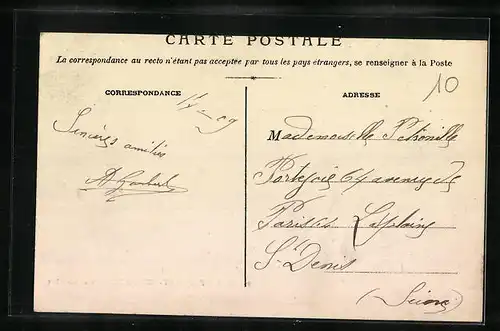 CARTE POSTALE
La correspondance au recto n'étant pas acceptée par tous les pays étrangers, se renseigner à la Poste
10
CORRESPONDANCE
ADRESSE
09
Sincères amitiés
Mademoiselle Pétronille
Portejoie 64 avenue de
Paris 64 La plaine
St Denis
(Seine)